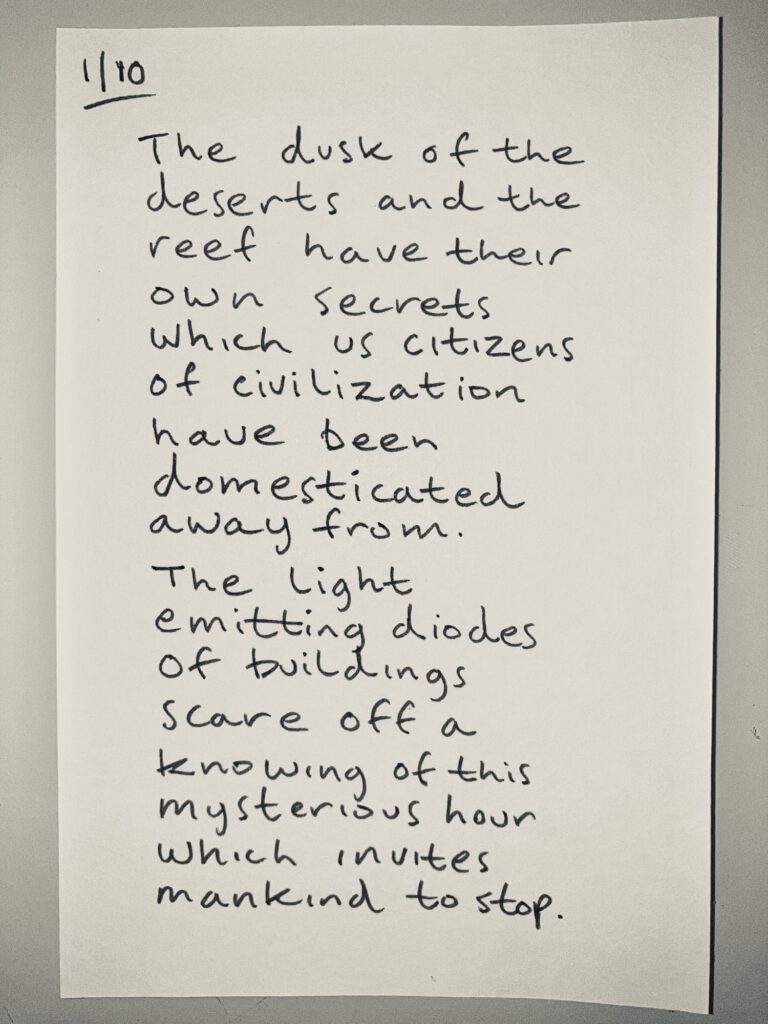 1/10
The dusk of the
deserts and the
reef have their
own secrets
which us citizens
of civilization
have been
domesticated
away from.
The light
emitting diodes
of buildings
scare off a
knowing of this
mysterious hour
which invites
mankind to stop.